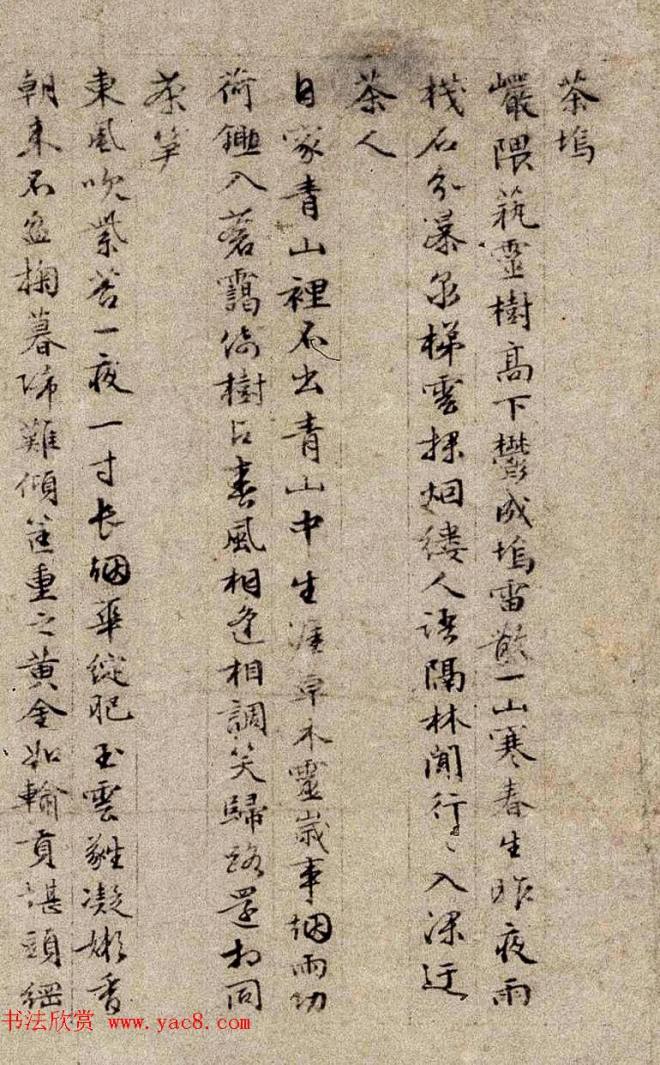 茶塢
巖隈蓺靈樹高下鬱成塢雷散一山寒春生昨夜雨
棧石分瀑泉梯雲探烟縷人語隔林聞行〻入深迂
茶人
自家青山裡不出青山中生涯草木靈歲事烟雨功
荷鋤入蒼靄倚樹占春風相逢相調笑歸路還相同
茶笋
東風吹紫苔一夜一寸長烟華綻肥玉雲蕤凝嫩香
朝來不盈掬暮歸難傾筐重之黃金如輸貢堪頭綱
书法欣赏 www.yac8.com